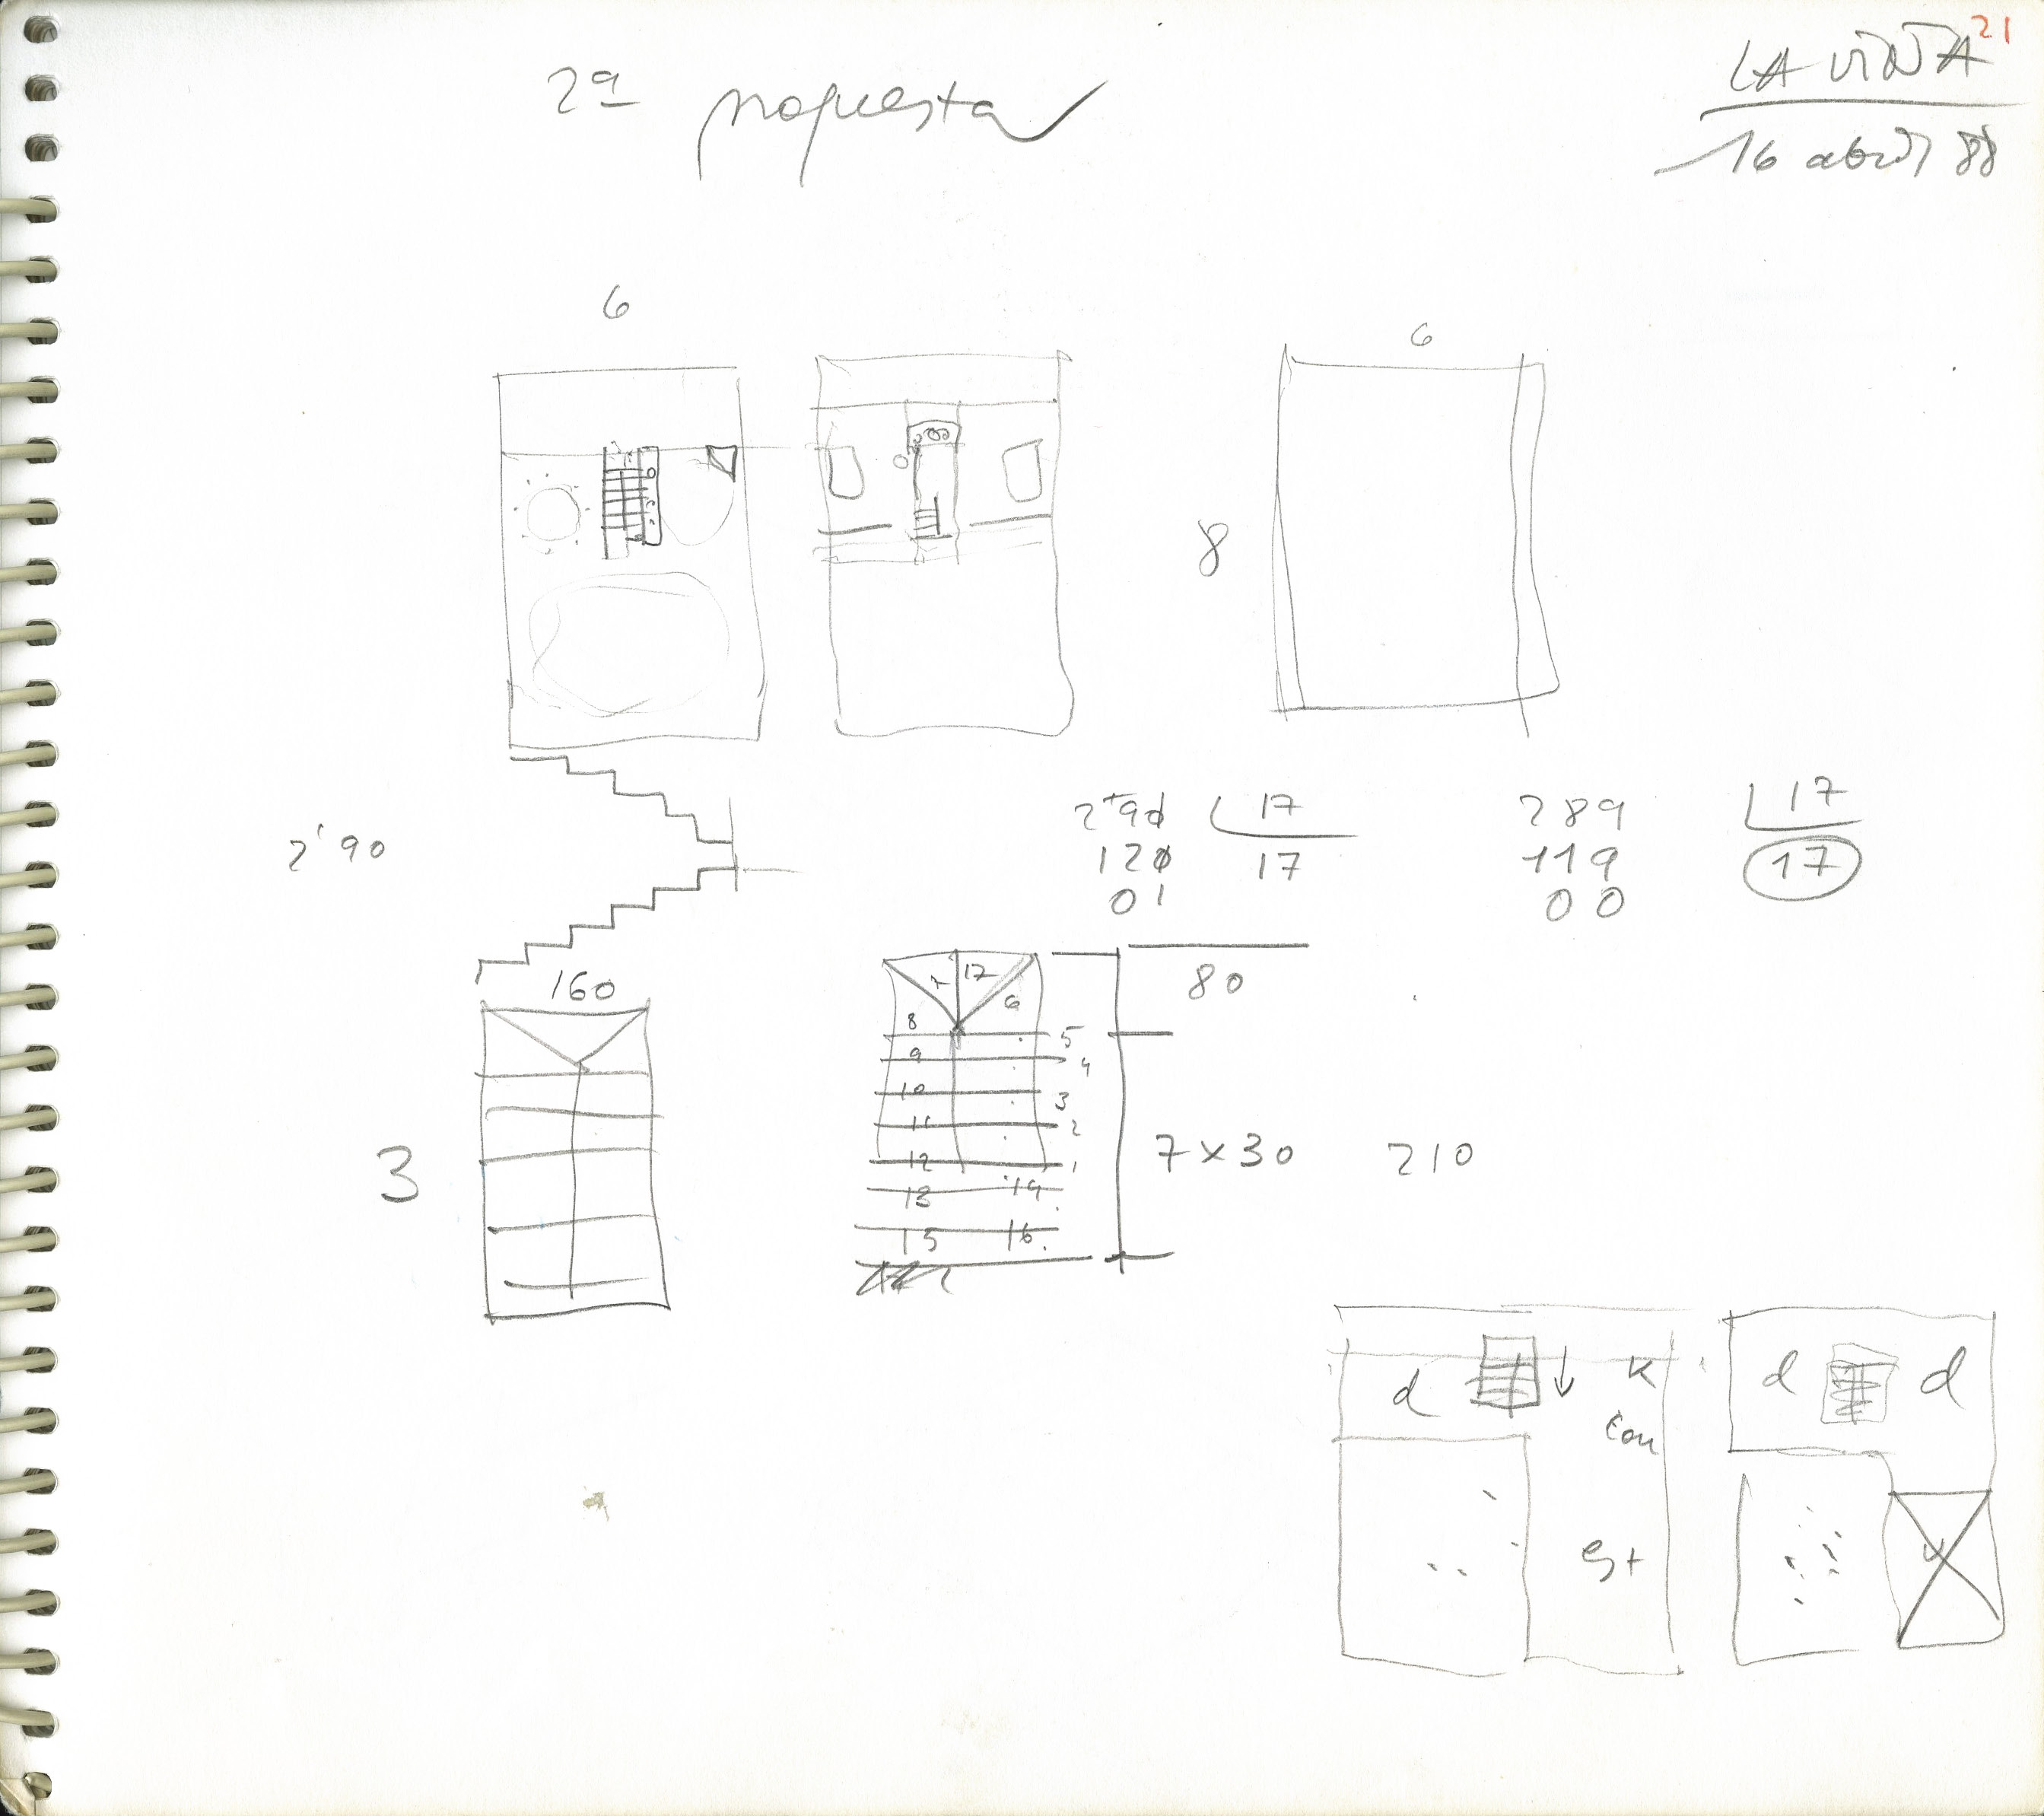 21
LA VIÑA
2ª propuesta
16 abril 88
6
6
8
2'90
290 17
120 17
01
289 17
119 17
00
160
3
7 17 6
8 5
9 4
10 3
11 2
12 1
13 14
15 16
80
7 x 30 210
d K
com
est
d d